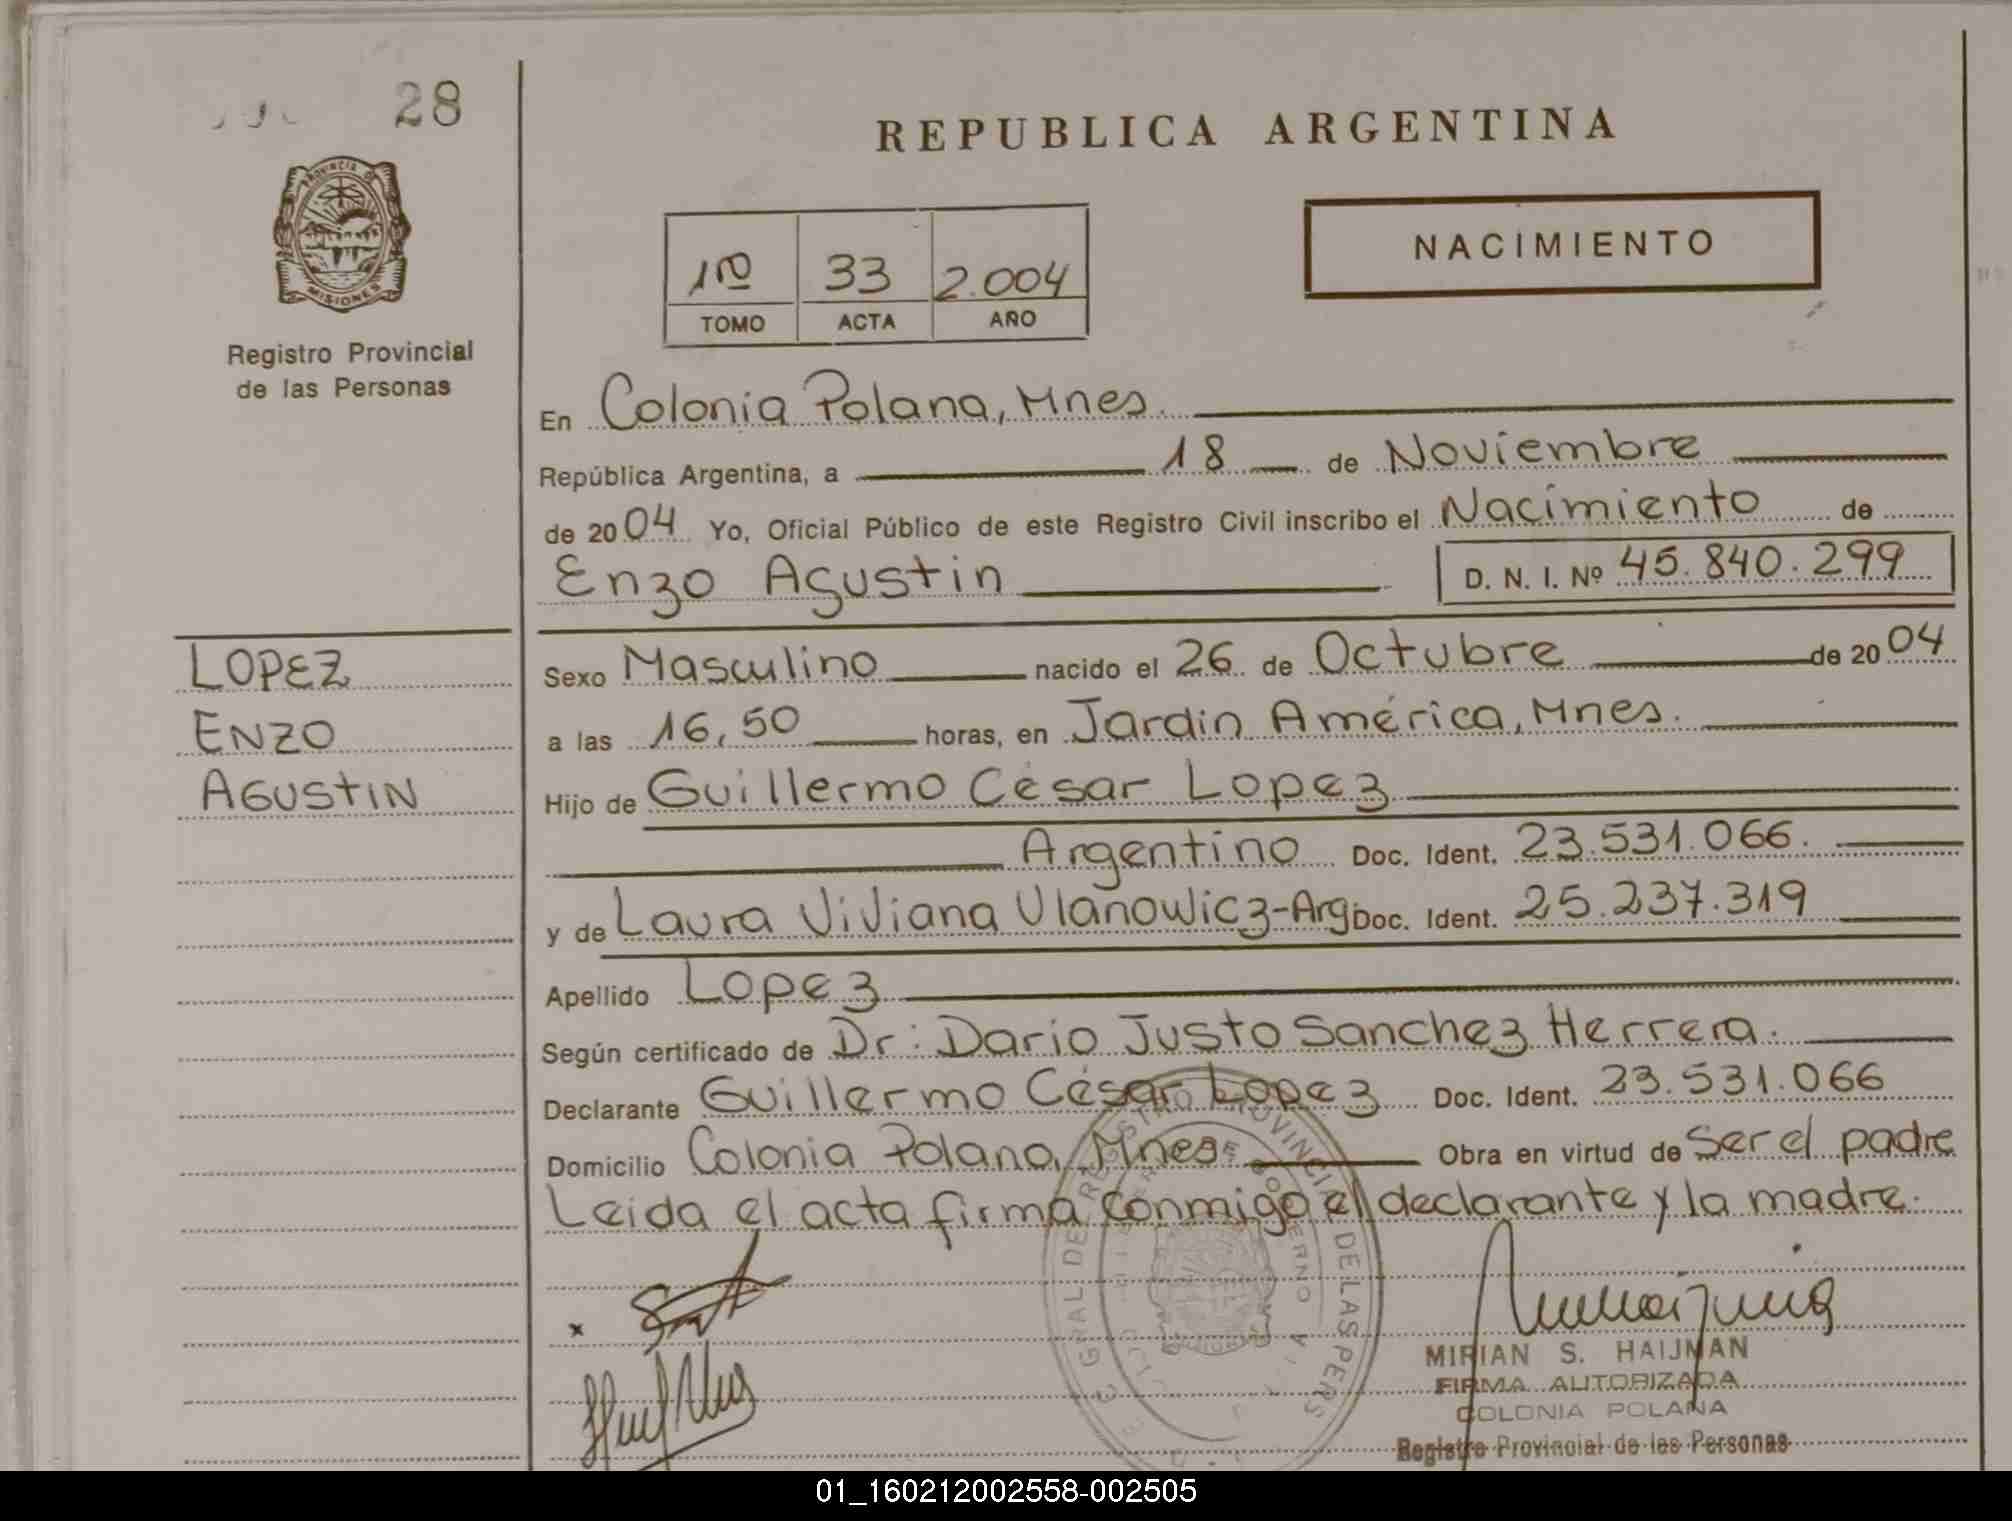 28
REPUBLICA ARGENTINA
PROVINCIA DE
MISIONES
NACIMIENTO
1ro 33 2.004
TOMO ACTA AÑO
Registro Provincial
de las Personas
En Colonia Polana, Mnes.
República Argentina, a 18 de Noviembre
de 2004 Yo, Oficial Público de este Registro Civil inscribo el Nacimiento de
Enzo Agustin D. N. I. Nº 45.840.299
LOPEZ
ENZO
AGUSTIN
Sexo Masculino nacido el 26 de Octubre de 2004
a las 16,50 horas, en Jardin América, Mnes.
Hijo de Guillermo César Lopez
Argentino Doc. Ident. 23.531.066.
y de Laura Viviana Vlanowicz-Arg Doc. Ident. 25.237.319
Apellido Lopez
Según certificado de Dr: Dario Justo Sanchez Herrera.
Declarante Guillermo César Lopez Doc. Ident. 23.531.066
Domicilio Colonia Polana, Mnes Obra en virtud de Ser el padre
Leida el acta firma conmigo el declarante y la madre.
GRAL DE REGISTRO PROVINCIAL DE LAS PERS
MIRIAN S. HAIJMAN
FIRMA AUTORIZADA
COLONIA POLANA
Registro Provincial de las Personas
01_160212002558-002505